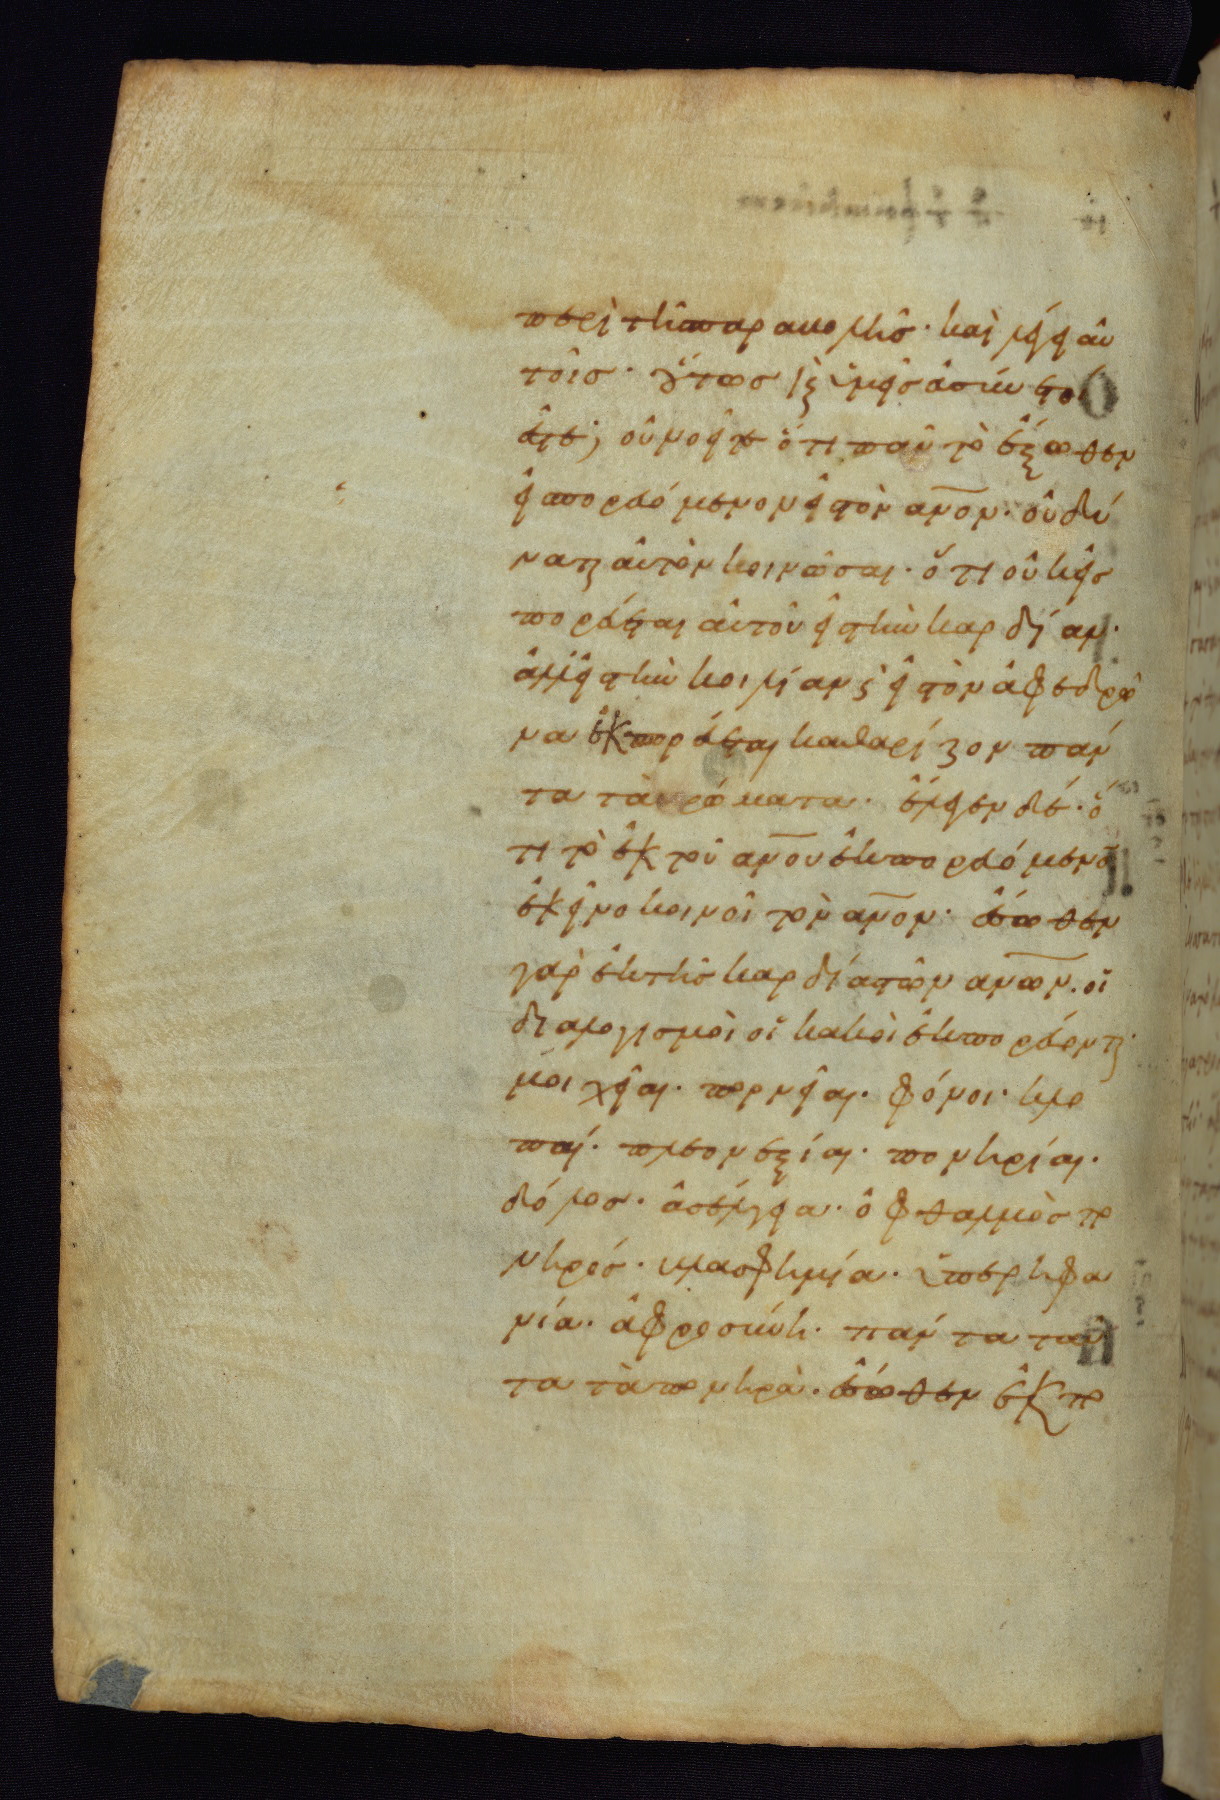 περὶ τῆς παραβολῆς· καὶ λέγει αὐ
τοῖς· οὕτως καὶ ὑμεῖς ἀσύνετοί
ἐστε; οὐ νοεῖτε ὅτι πᾶν τὸ ἔξωθεν
εἰσπορευόμενον εἰς τὸν ἄνον· οὐ δύ
ναται αὐτὸν κοινῶσαι· ὅτι οὐκ εἰσ
πορεύεται αὐτοῦ εἰς τὴν καρδίαν·
ἀλλ εἰς τὴν κοιλίαν καὶ εἰς τὸν ἀφεδρῶ
να ἐκπορεύεται καθαρίζον πάν
τα τὰ βρώματα· ἔλεγεν δέ· ὅ
τι τὸ ἐκ τοῦ ανου ἐκπορευόμενον
ἐκεῖνο κοινοῖ τὸν ανον· ἔσωθεν
γὰρ ἐκ τῆς καρδίας τῶν ανων· οἱ
διαλογισμοὶ οἱ κακοὶ ἐκπορεύονται·
μοιχεῖαι· πορνεῖαι· φόνοι· κλο
παί· πλεονεξίαι· πονηρίαι·
δόλος· ἀσέλγεια· ὀφθαλμὸς πο
νηρός· βλασφημία· ὑπερηφα
νία· ἀφροσύνη· πάντα ταῦ
τα τὰ πονηρὰ· ἔσωθεν ἐκπο